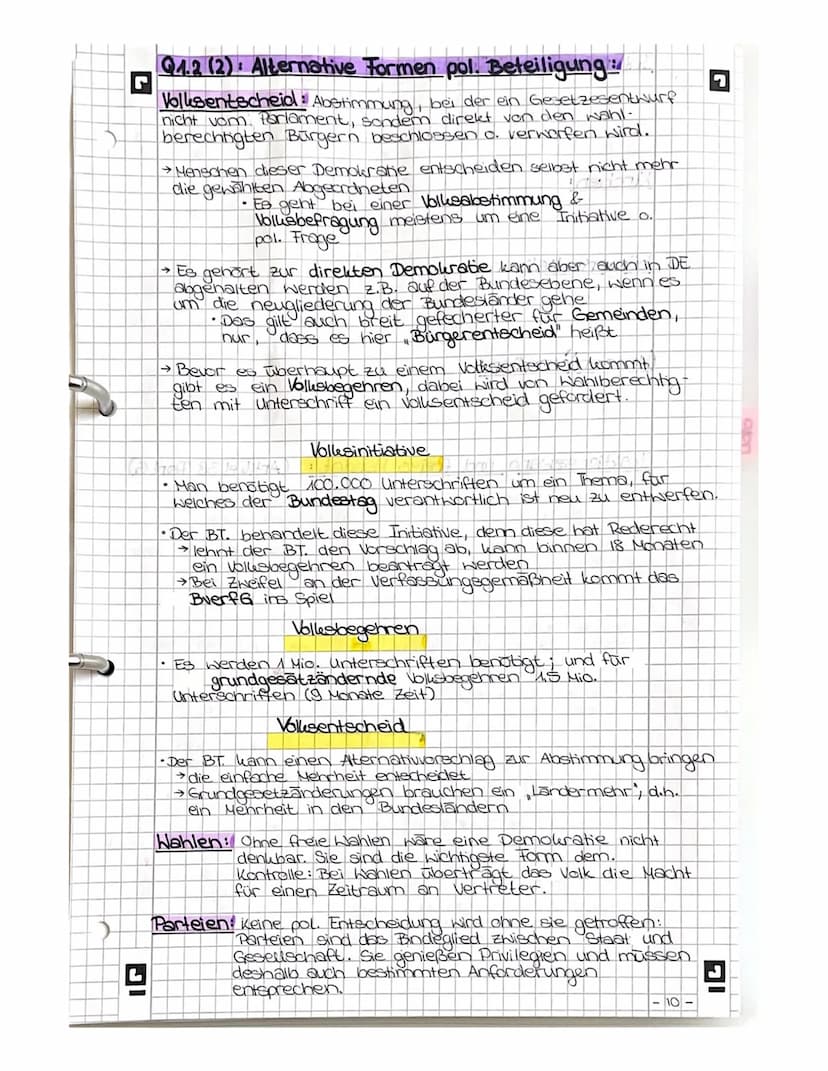 Q1.2 (2): Alternative Formen pol. Beteiligung:
Volksentscheid: Abstimmung, bei der ein Gesetzesentwurf
nicht vom Parlament, sondern direkt von den wahl-
berechtigten Bürgern beschlossen o. verworfen wird.
→ Menschen dieser Demokratie entscheiden selbst nicht mehr
die gewählten Abgeordneten
• Es geht bei einer Volksabstimmung &
Volksbefragung meistens um eine Initiative o.
pol. Frage
→ Es gehört zur direkten Demokratie kann aber auch in DE
abgehalten werden z.B. auf der Bundesebene, wenn es
um die neugliederung der Bundesländer gehe
• Das gilt auch breit gefächerter für Gemeinden,
nur, dass es hier „Bürgerentscheid" heißt
→ Bevor es überhaupt zu einem Volksentscheid kommt,
gibt es ein Volksbegehren, dabei wird von Wahlberechtig-
ten mit Unterschrift ein Volksentscheid gefordert.
Volksinitiative
• Man benötigt 100.000 Unterschriften um ein Thema, für
welches der Bundestag verantwortlich ist neu zu entwerfen.
• Der BT. behandelt diese Initiative, denn diese hat Rederecht
→ lehnt der BT. den Vorschlag ab, kann binnen 18 Monaten
ein Volksbegehren beantragt werden
→ Bei Zweifel an der Verfassungsgemäßheit kommt das
BVerfG ins Spiel
Volksbegehren
• Es werden 1 Mio. Unterschriften benötigt; und für
grundgesätzändernde Volksbegehren 1,5 Mio.
Unterschriften (9 Monate Zeit)
Volksentscheid
• Der BT. kann einen Aternativvorschlag zur Abstimmung bringen
→ die einfache Mehrheit entscheidet
→ Grundgesetzänderungen brauchen ein „Ländermehr", d.h.
ein Mehrheit in den Bundesländern
Wahlen: Ohne freie Wahlen wäre eine Demokratie nicht
denkbar. Sie sind die wichtigste Form dem.
Kontrolle: Bei Wahlen überträgt das Volk die Macht
für einen Zeitraum an Vertreter.
Parteien: Keine pol. Entscheidung wird ohne sie getroffen:
Parteien sind das Bindeglied zwischen Staat und
Gesellschaft. Sie genießen Privilegien und müssen
deshalb auch bestimmten Anforderungen
entsprechen.
- 10 -